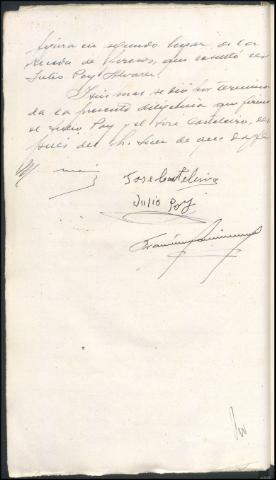 figura en segundo lugar, de la
Rueda de Presos, que resultó ser
Julio Poy Alvarez
Y sin mas se dió por termina
da la presente diligencia que firma
el Julio Poy y el José Casteleiro, des
pués del Sr. Juez de que doy fe
Jose Casteleiro
Julio Poy